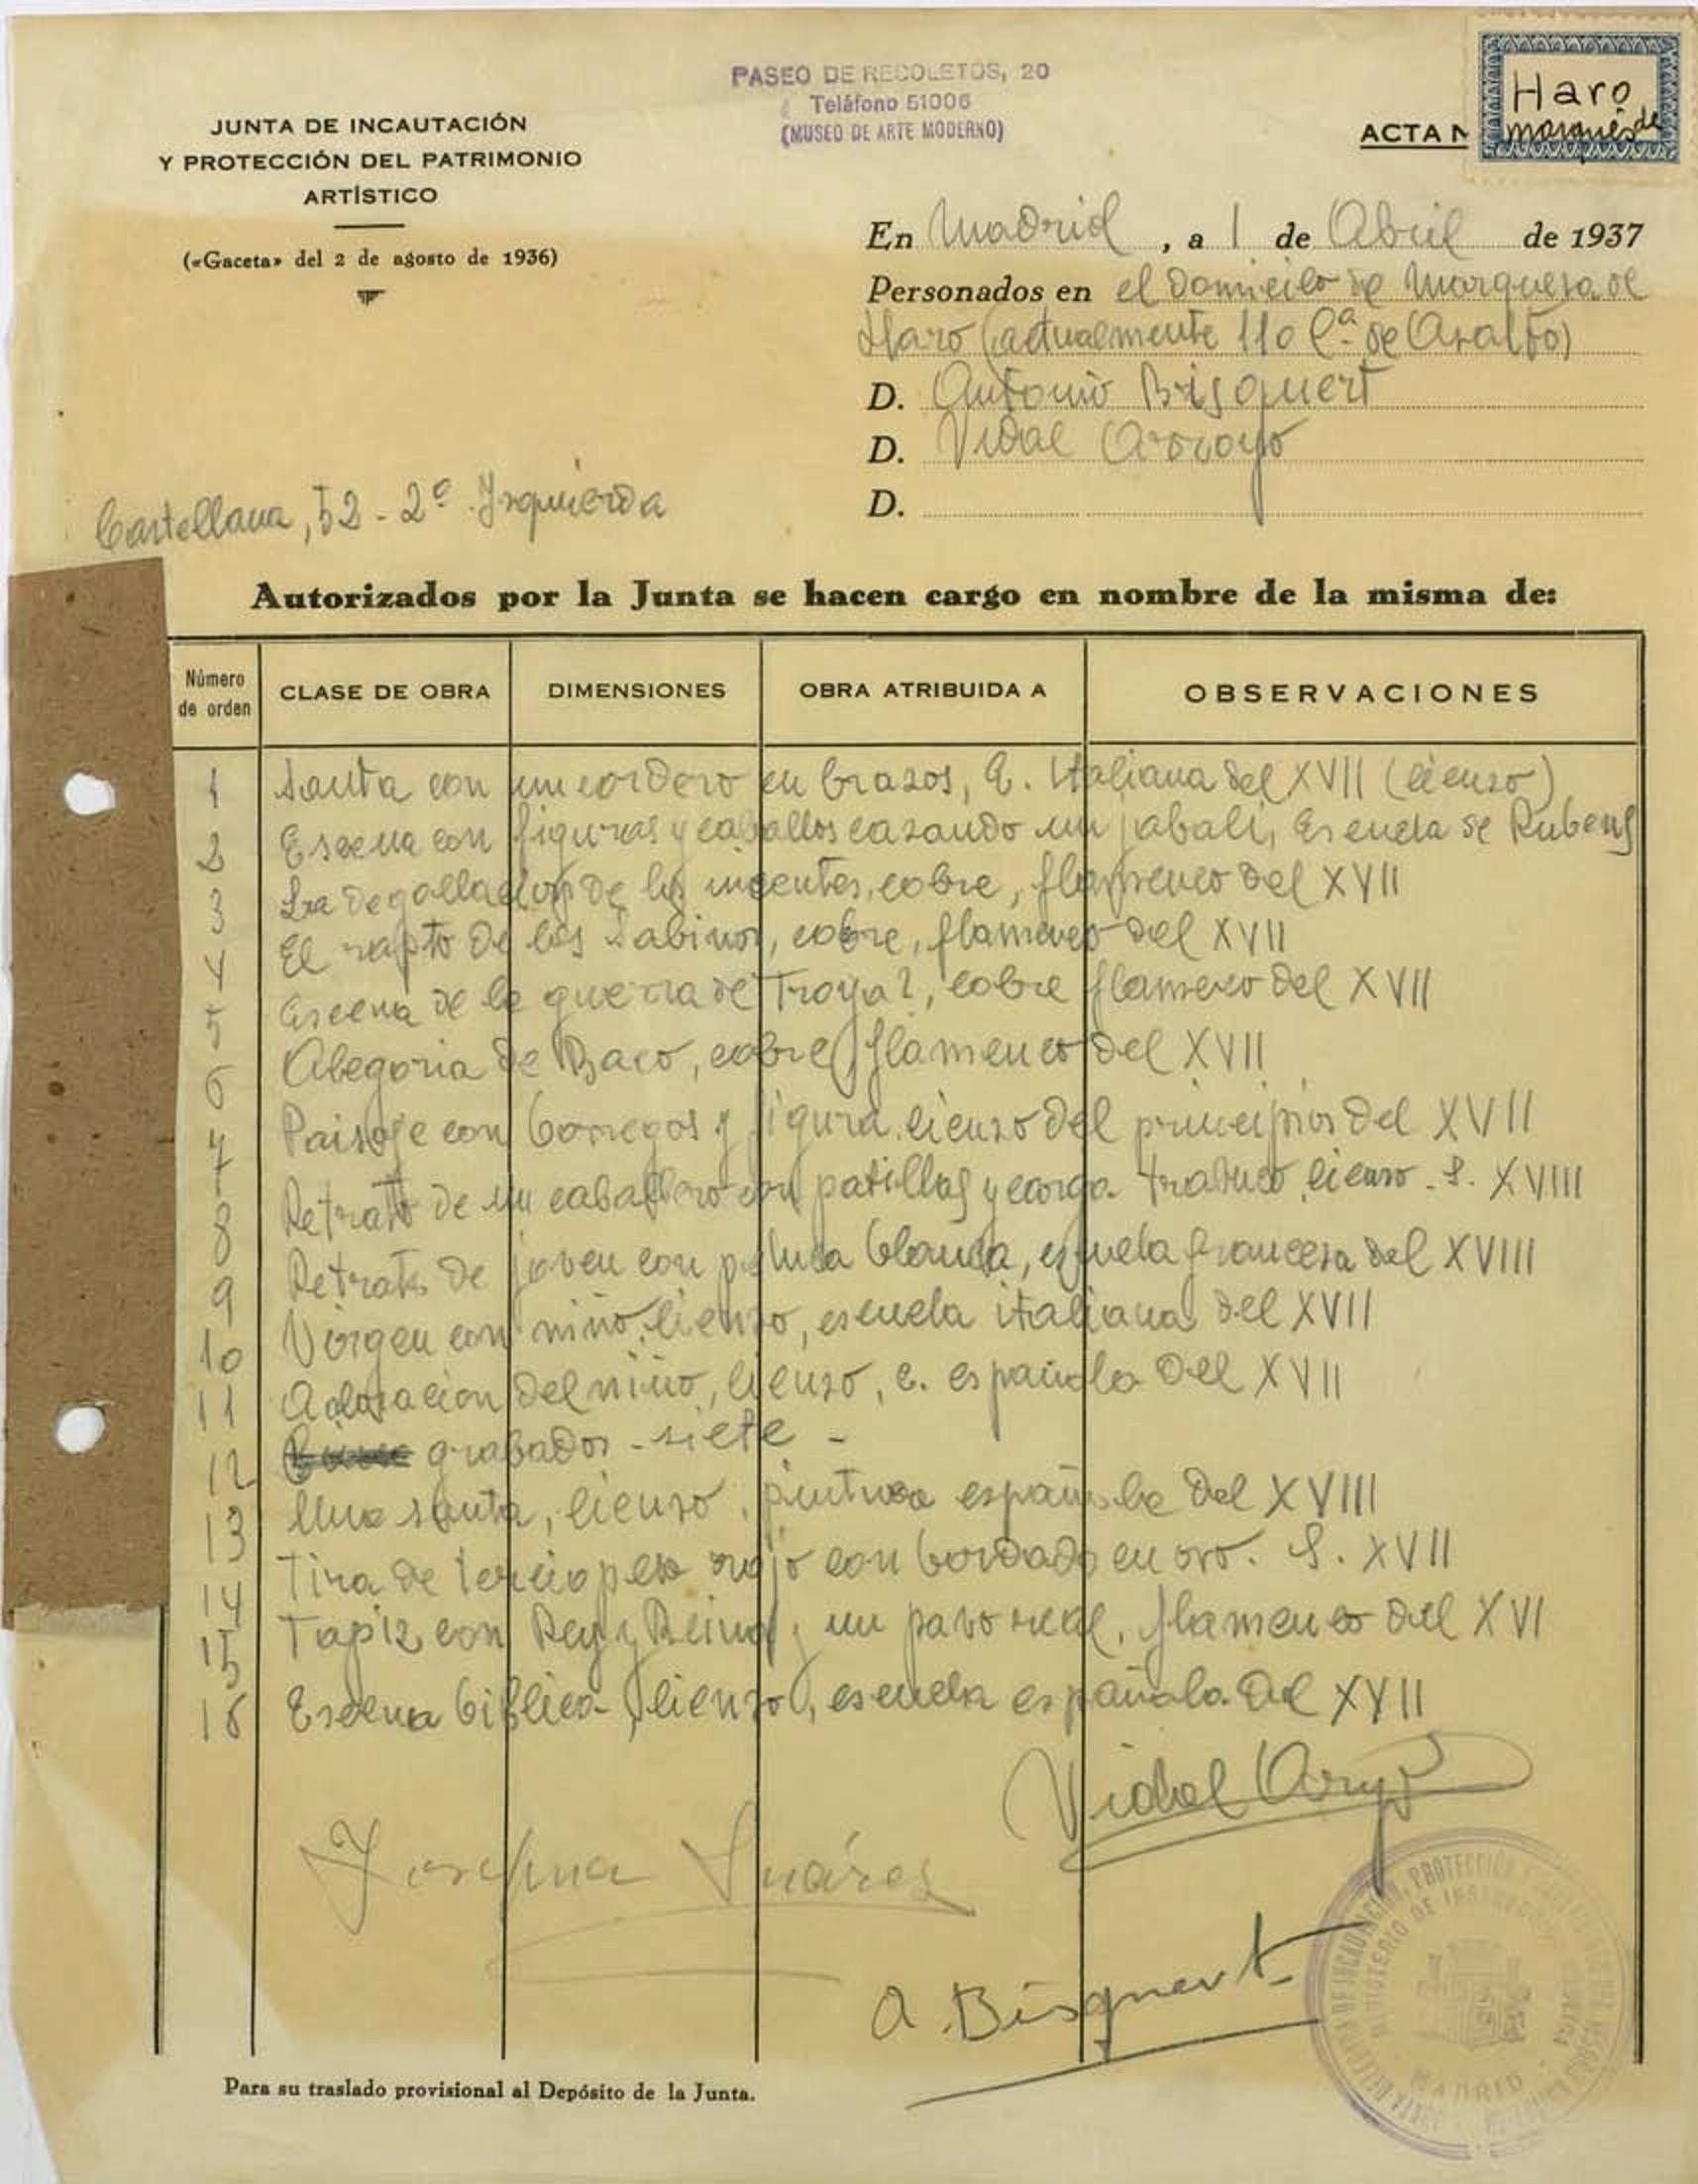 PASEO DE RECOLETOS, 20
Teléfono 51006
(MUSEO DE ARTE MODERNO)
JUNTA DE INCAUTACIÓN
Y PROTECCIÓN DEL PATRIMONIO
ARTÍSTICO
(«Gaceta» del 2 de agosto de 1936)
ACTA N
Haro
marqués de
En Madrid, a 1 de Abril de 1937
Personados en el domicilio de Marquesa de
Haro (actualmente 110 Cª de Asalto)
D. Antonio Bisquert
D. Vidal Arroyo
D.
Castellana, 52 - 2º Izquierda
Autorizados por la Junta se hacen cargo en nombre de la misma de:
Número de orden CLASE DE OBRA DIMENSIONES OBRA ATRIBUIDA A OBSERVACIONES
1 Santa con un cordero en brazos, E. Italiana del XVII (lienzo)
2 Escena con figuras y caballos cazando un jabali, Escuela de Rubens
3 La degollacion de los inocentes, cobre, flamenco del XVII
4 El rapto de las Sabinas, cobre, flamenco del XVII
5 Escena de la guerra de Troya?, cobre flamenco del XVII
6 Alegoria de Baco, cobre, flamenco del XVII
7 Paisaje con borregos y figura, lienzo del principios del XVII
8 Retrato de un caballero con patillas y trabuco, lienzo. S. XVIII
9 Retrato de joven con peluca blanca, escuela francesa del XVIII
10 Virgen con niño, lienzo, escuela italiana del XVII
11 Adoracion del niño, lienzo, e. española del XVII
12 grabados - siete -
13 Una santa, lienzo, pintura española del XVIII
14 Tira de terciopelo rojo con bordado en oro. S. XVII
15 Tapiz con Rey y Reina y un pavo real, flamenco del XVI
16 Escena biblica, lienzo, escuela española del XVII
Vidal Arroyo
Josefina Suárez
A. Bisquert
MADRID
Para su traslado provisional al Depósito de la Junta.